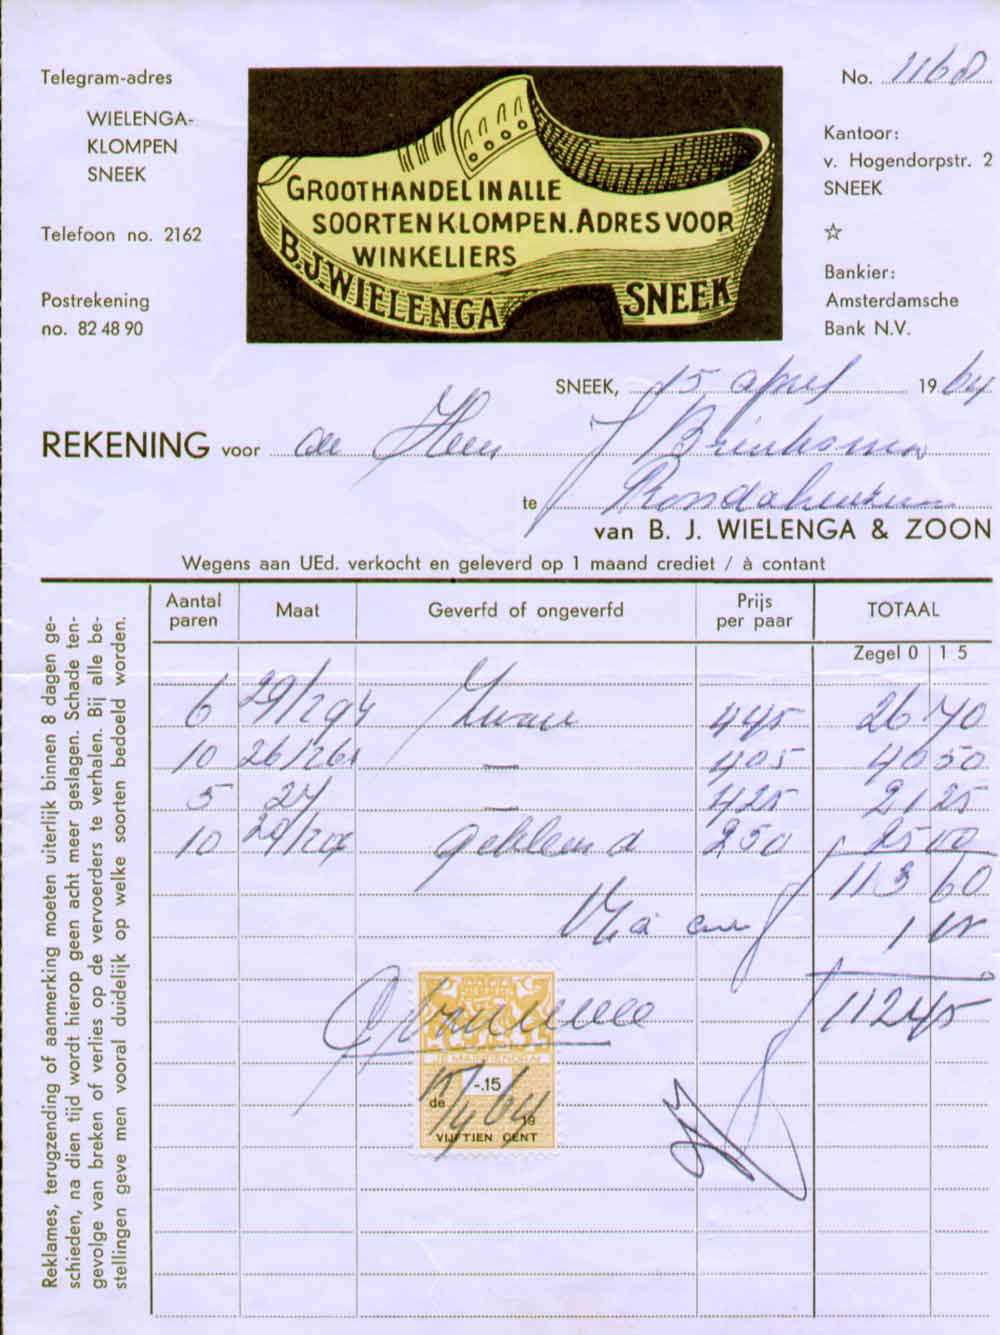 Telegram-adres
WIELENGA-
KLOMPEN
SNEEK
Telefoon no. 2162
Postrekening
no. 82 48 90
GROOTHANDEL IN ALLE
SOORTEN KLOMPEN. ADRES VOOR
WINKELIERS
B.J. WIELENGA SNEEK
No. 1168
Kantoor:
v. Hogendorpstr. 2
SNEEK
☆
Bankier:
Amsterdamsche
Bank N.V.
SNEEK, 15 april 1964
REKENING voor de Heer J Brinksma
te
van B. J. WIELENGA & ZOON
Wegens aan UEd. verkocht en geleverd op 1 maand crediet / à contant
Aantal paren Maat Geverfd of ongeverfd Prijs per paar TOTAAL
Zegel 0 15
6 29/294 445 26 70
10 26/261 — 405 40 50
5 27 — 425 21 25
10 gebleend 250 25 00
113 60
1 15
112 45
JE MAINTIENDRAI
-.15
de 15/4 64 19
VIJFTIEN CENT
Reklames, terugzending of aanmerking moeten uiterlijk binnen 8 dagen ge-
schieden, na dien tijd wordt hierop geen acht meer geslagen. Schade ten-
gevolge van breken of verlies op de vervoerders te verhalen. Bij alle be-
stellingen geve men vooral duidelijk op welke soorten bedoeld worden.